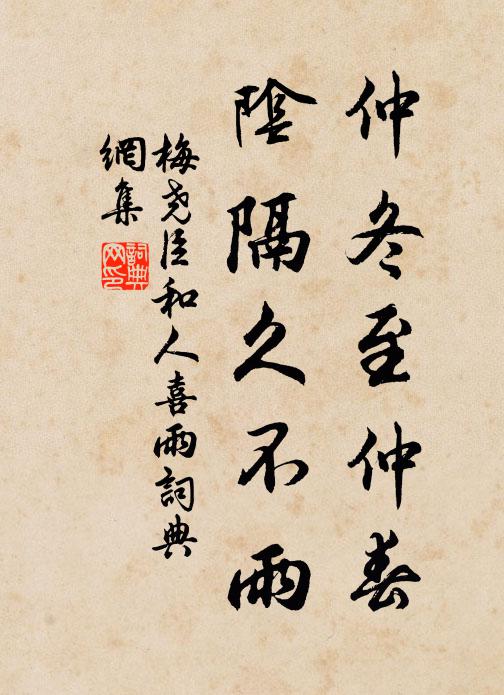 仲冬至仲春
陰隔久不雨
梅堯臣和人喜雨詞典
網集
詞典
网印